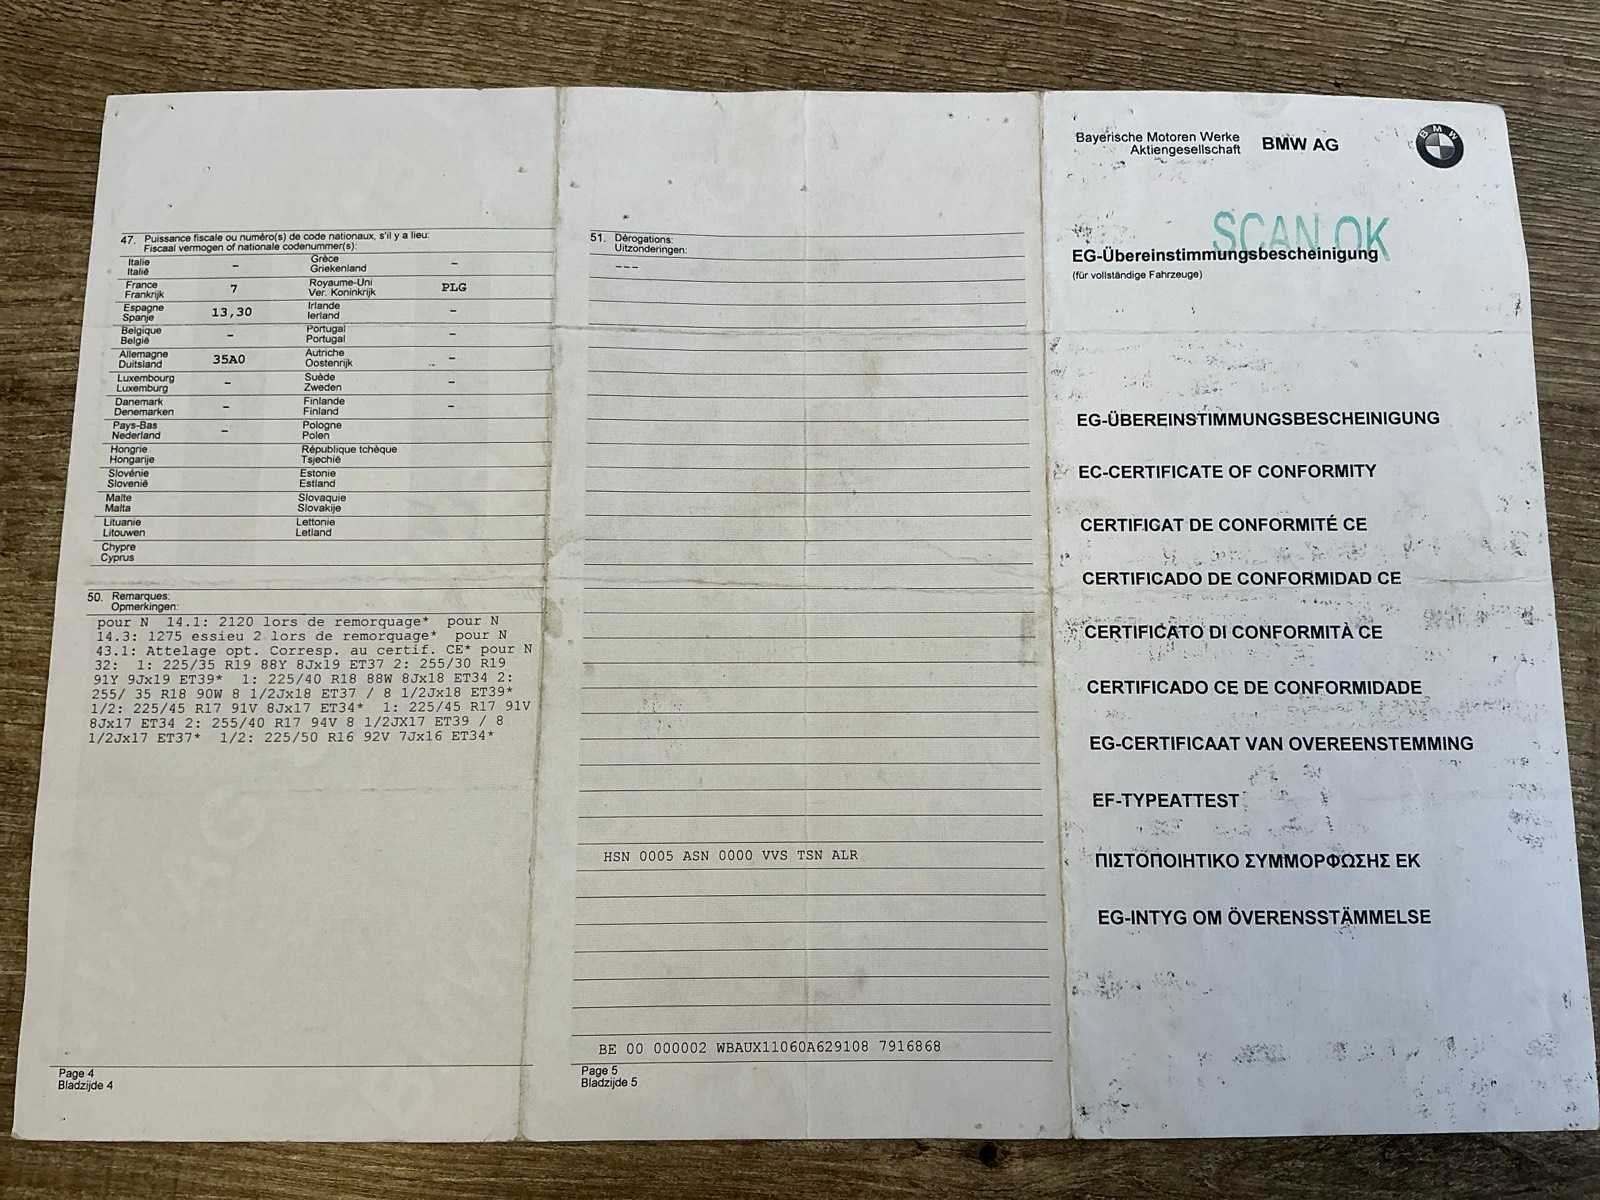 47. Puissance fiscale ou numéro(s) de code nationaux, s'il y a lieu:
Fiscaal vermogen of nationale codenummer(s):
Italie – Grèce –
Italië Griekenland
France 7 Royaume-Uni PLG
Frankrijk Ver. Koninkrijk
Espagne 13,30 Irlande –
Spanje Ierland
Belgique – Portugal –
België Portugal
Allemagne 35A0 Autriche –
Duitsland Oostenrijk
Luxembourg – Suède –
Luxemburg Zweden
Danemark – Finlande –
Denemarken Finland
Pays-Bas – Pologne
Nederland Polen
Hongrie République tchèque
Hongarije Tsjechië
Slovénie Estonie
Slovenië Estland
Malte Slovaquie
Malta Slovakije
Lituanie Lettonie
Litouwen Letland
Chypre
Cyprus
50. Remarques:
Opmerkingen:
pour N 14.1: 2120 lors de remorquage* pour N
14.3: 1275 essieu 2 lors de remorquage* pour N
43.1: Attelage opt. Corresp. au certif. CE* pour N
32: 1: 225/35 R19 88Y 8Jx19 ET37 2: 255/30 R19
91Y 9Jx19 ET39* 1: 225/40 R18 88W 8Jx18 ET34 2:
255/ 35 R18 90W 8 1/2Jx18 ET37 / 8 1/2Jx18 ET39*
1/2: 225/45 R17 91V 8Jx17 ET34* 1: 225/45 R17 91V
8Jx17 ET34 2: 255/40 R17 94V 8 1/2JX17 ET39 / 8
1/2Jx17 ET37* 1/2: 225/50 R16 92V 7Jx16 ET34*
Page 4
Bladzijde 4
51. Dérogations:
Uitzonderingen:
---
HSN 0005 ASN 0000 VVS TSN ALR
BE 00 000002 WBAUX11060A629108 7916868
Page 5
Bladzijde 5
Bayerische Motoren Werke
Aktiengesellschaft BMW AG
BMW
SCAN OK
EG-Übereinstimmungsbescheinigung
(für vollständige Fahrzeuge)
EG-ÜBEREINSTIMMUNGSBESCHEINIGUNG
EC-CERTIFICATE OF CONFORMITY
CERTIFICAT DE CONFORMITÉ CE
CERTIFICADO DE CONFORMIDAD CE
CERTIFICATO DI CONFORMITÀ CE
CERTIFICADO CE DE CONFORMIDADE
EG-CERTIFICAAT VAN OVEREENSTEMMING
EF-TYPEATTEST
ΠΙΣΤΟΠΟΙΗΤΙΚΟ ΣΥΜΜΟΡΦΩΣΗΣ ΕΚ
EG-INTYG OM ÖVERENSSTÄMMELSE